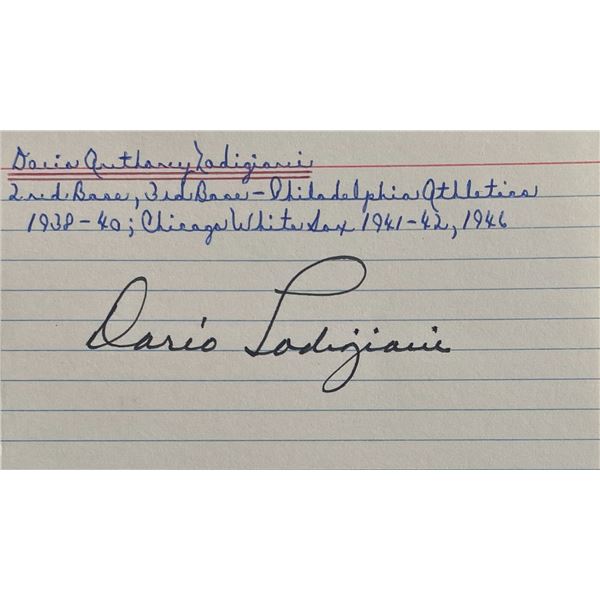 Dario Anthony Lodigiani
2nd Base, 3rd Base - Philadelphia Athletics
1938-40; Chicago White Sox 1941-42, 1946
Dario Lodigiani